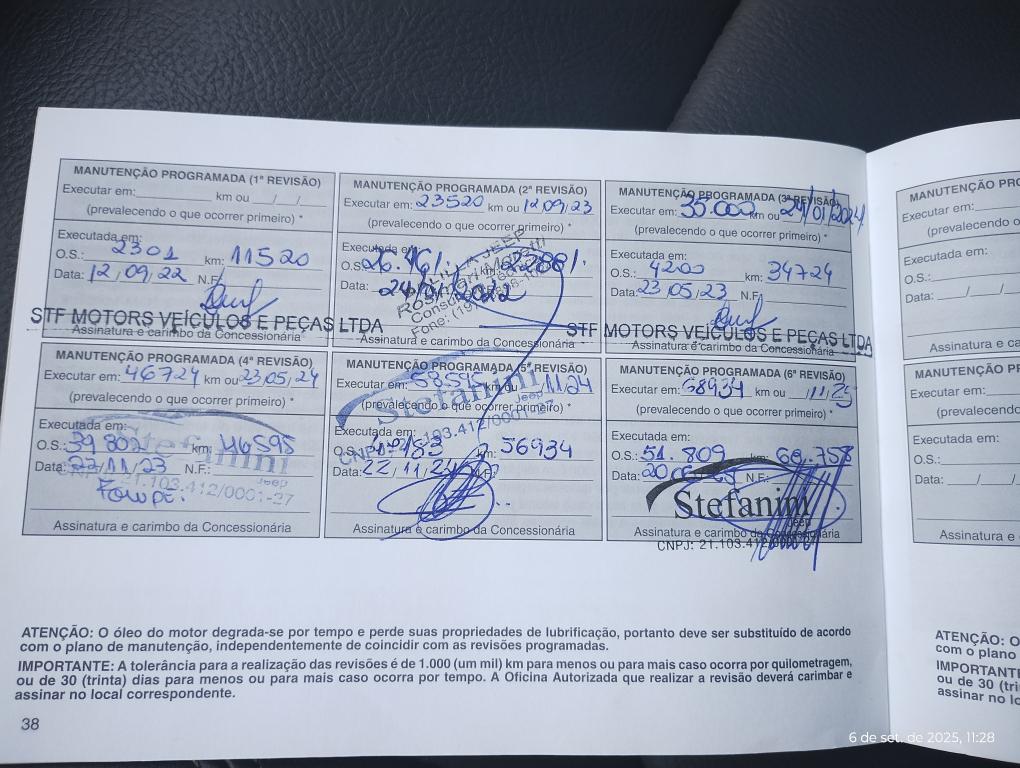 MANUTENÇÃO PROGRAMADA (1ª REVISÃO)
Executar em: km ou / /
(prevalecendo o que ocorrer primeiro) *
Executada em:
O.S.: 2301 km: 11520
Data: 12/09/22 N.F.
STF MOTORS VEÍCULOS E PEÇAS LTDA
Assinatura e carimbo da Concessionária
MANUTENÇÃO PROGRAMADA (2ª REVISÃO)
Executar em: 23520 km ou 12/09/23
(prevalecendo o que ocorrer primeiro) *
Executada em:
O.S.: 26.461 22881
Data:
Fone: (19)
Assinatura e carimbo da Concessionária
MANUTENÇÃO PROGRAMADA (3ª REVISÃO)
Executar em: 35.000 km ou 24/01/2024
(prevalecendo o que ocorrer primeiro) *
Executada em:
O.S.: 4200 km: 34724
Data: 23/05/23 N.F.
STF MOTORS VEÍCULOS E PEÇAS LTDA
Assinatura e carimbo da Concessionária
MANUTENÇÃO PROGRAMADA (4ª REVISÃO)
Executar em: 46724 km ou 23/05/24
(prevalecendo o que ocorrer primeiro) *
Executada em:
O.S.: 39802 km: 46595
Data: 22/11/23 N.F.:
Stefanini
Jeep
21.103.412/0001-27
Assinatura e carimbo da Concessionária
MANUTENÇÃO PROGRAMADA (5ª REVISÃO)
Executar em: 58595 km ou 11/24
(prevalecendo o que ocorrer primeiro) *
Stefanini
Jeep
Executada em:
O.S.: km: 56934
Data: 22/11/24 N.F.:
Assinatura e carimbo da Concessionária
MANUTENÇÃO PROGRAMADA (6ª REVISÃO)
Executar em: 68934 km ou 11/25
(prevalecendo o que ocorrer primeiro) *
Executada em:
O.S.: 51.809 km:
Data: N.F.:
Stefanini
Jeep
Assinatura e carimbo da Concessionária
CNPJ: 21.103.412/0001-27
ATENÇÃO: O óleo do motor degrada-se por tempo e perde suas propriedades de lubrificação, portanto deve ser substituído de acordo
com o plano de manutenção, independentemente de coincidir com as revisões programadas.
IMPORTANTE: A tolerância para a realização das revisões é de 1.000 (um mil) km para menos ou para mais caso ocorra por quilometragem,
ou de 30 (trinta) dias para menos ou para mais caso ocorra por tempo. A Oficina Autorizada que realizar a revisão deverá carimbar e
assinar no local correspondente.
38
MANUTENÇÃO PRO
Executar em:
(prevalecendo
Executada em:
O.S.:
Data: / /
Assinatura e ca
MANUTENÇÃO PR
Executar em:
(prevalecend
Executada em:
O.S.:
Data: / /
Assinatura e
ATENÇÃO: O
com o plano
IMPORTANT
ou de 30 (tri
assinar no lo
6 de set. de 2025, 11:28